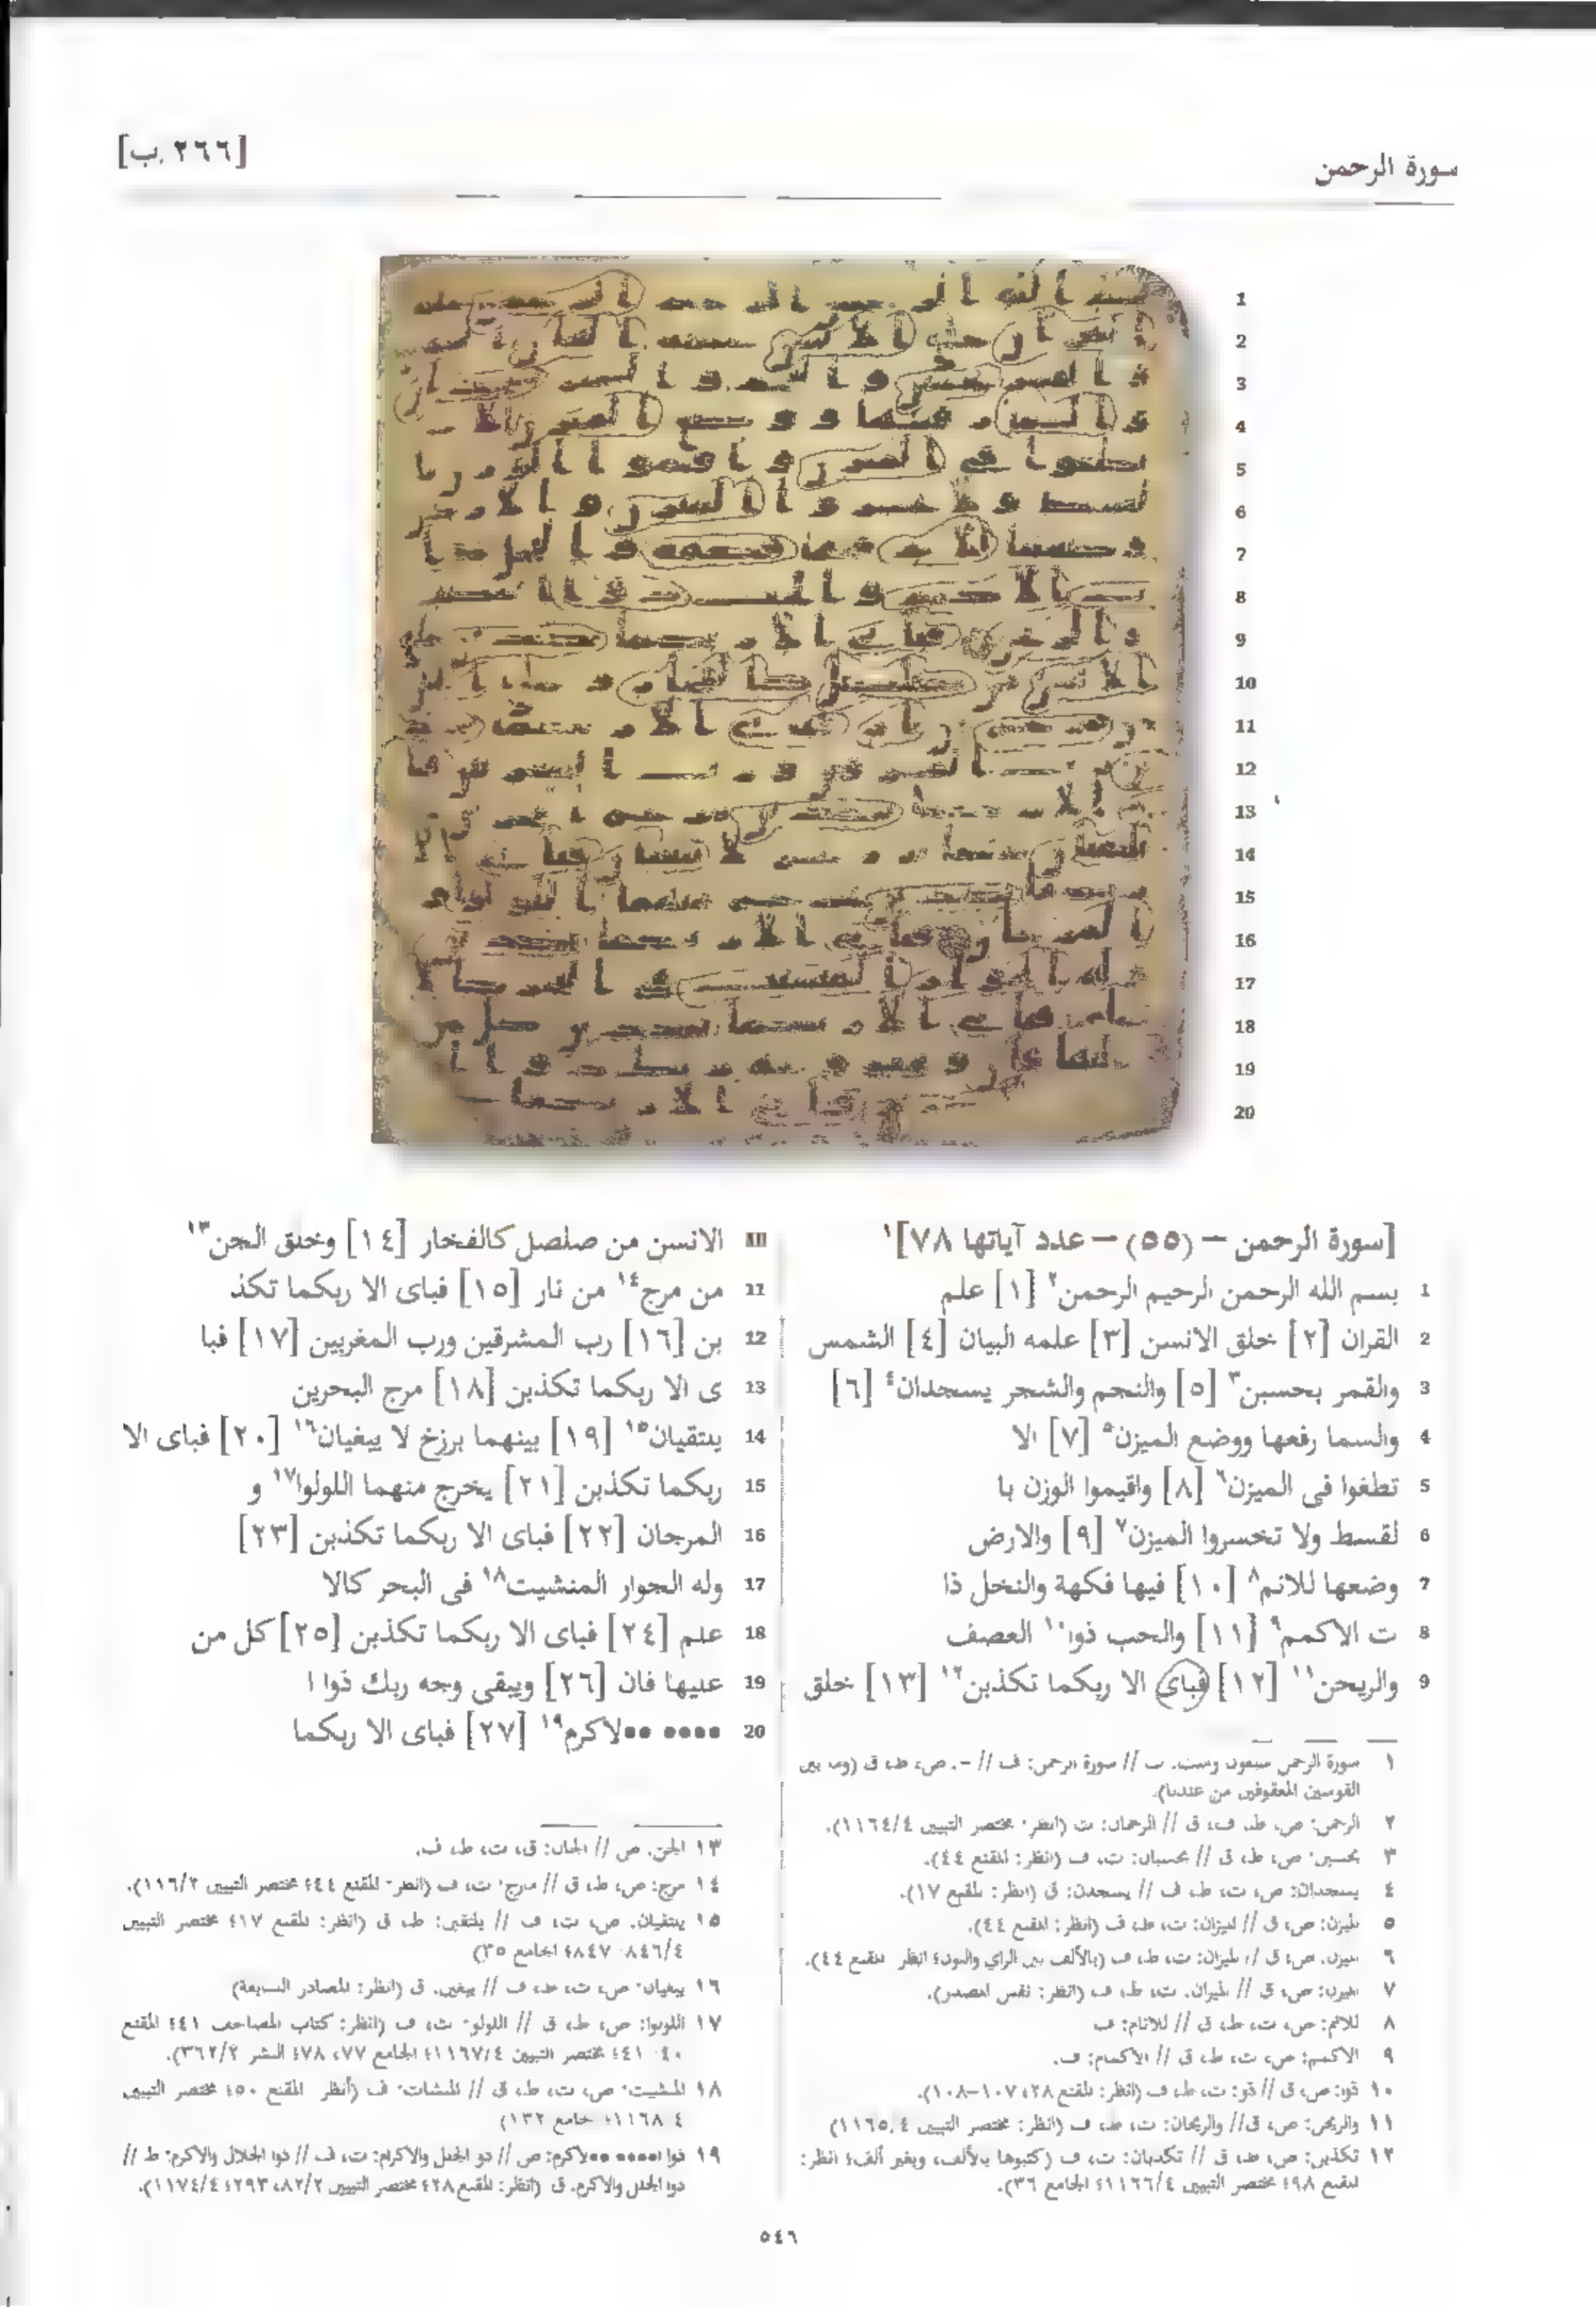 سورة الرحمن
[٢٦٦.ب]
[سورة الرحمن – (٥٥) – عدد آياتها ٧٨]١
1 بسم الله الرحمن الرحيم الرحمن٢ [١] علم
2 القران [٢] خلق الانسن [٣] علمه البيان [٤] الشمس
3 والقمر بحسبن٣ [٥] والنجم والشجر يسجدان٤ [٦]
4 والسما رفعها ووضع الميزن٥ [٧] الا
5 تطغوا فى الميزن٦ [٨] واقيموا الوزن با
6 لقسط ولا تخسروا الميزن٧ [٩] والارض
7 وضعها للانم٨ [١٠] فيها فكهة والنخل ذا
8 ت الاكمم٩ [١١] والحب ذوا١٠ العصف
9 والريحن١١ [١٢] فباى الا ربكما تكذبن١٢ [١٣] خلق
10 الانسن من صلصل كالفخار [١٤] وخلق الجن١٣
11 من مرج١٤ من نار [١٥] فباى الا ربكما تكذ
12 بن [١٦] رب المشرقين ورب المغربين [١٧] فبا
13 ى الا ربكما تكذبن [١٨] مرج البحرين
14 يلتقيان١٥ [١٩] بينهما برزخ لا يبغيان١٦ [٢٠] فباى الا
15 ربكما تكذبن [٢١] يخرج منهما اللولوا١٧ و
16 المرجان [٢٢] فباى الا ربكما تكذبن [٢٣]
17 وله الجوار المنشيت١٨ فى البحر كالا
18 علم [٢٤] فباى الا ربكما تكذبن [٢٥] كل من
19 عليها فان [٢٦] ويبقى وجه ربك ذوا ا
20 •••• ••لاكرم١٩ [٢٧] فباى الا ربكما
١ سورة الرحمن سبعون وست. ت // سورة الرحمن: ف // –. ص، ط، ق (وما بين
القوسين المعقوفين من عندنا).
٢ الرحمن: ص، ط، ف، ق // الرحمان: ت (انظر: مختصر التبيين ١١٦٤/٤).
٣ بحسبن: ص، ط، ق // بحسبان: ت، ف (انظر: المقنع ٤٤).
٤ يسجدان: ص، ت، ط، ف // يسجدن: ق (انظر: المقنع ١٧).
٥ الميزن: ص، ق // الميزان: ت، ط، ف (انظر: المقنع ٤٤).
٦ الميزن. ص، ق // الميزان: ت، ط، ف (بالألف بين الزاي والنون؛ انظر المقنع ٤٤).
٧ الميزن: ص، ق // الميزان. ت، ط، ف (انظر: نفس المصدر).
٨ للانم: ص، ت، ط، ق // للانام: ف
٩ الاكمم: ص، ت، ط، ق // الاكمام: ف.
١٠ ذوا: ص، ق // ذو: ت، ط، ف (انظر: المقنع ٢٨، ١٠٧–١٠٨).
١١ والريحن: ص، ق // والريحان: ت، ط، ف (انظر: مختصر التبيين ١١٦٥/٤)
١٢ تكذبن: ص، ط، ق // تكذبان: ت، ف (كتبوها بالألف، وبغير ألف؛ انظر:
المقنع ٩٨؛ مختصر التبيين ١١٦٦/٤؛ الجامع ٣٦).
١٣ الجن. ص // الجان: ق، ت، ط، ف.
١٤ مرج: ص، ط، ق // مارج: ت، ف (انظر: المقنع ٤٤؛ مختصر التبيين ١١٦/٢).
١٥ يلتقيان. ص، ت، ف // يلتقين: ط، ق (انظر: المقنع ١٧؛ مختصر التبيين
٨٤٦/٤-٨٤٧؛ الجامع ٣٥)
١٦ يبغيان: ص، ت، ط، ف // يبغين. ق (انظر: المصادر السابقة)
١٧ اللولوا: ص، ط، ق // اللولو: ت، ف (انظر: كتاب المصاحف ٤١؛ المقنع
٤٠-٤١؛ مختصر التبيين ١١٦٧/٤؛ الجامع ٧٧، ٧٨؛ النشر ٣٦٢/٢).
١٨ المنشيت: ص، ت، ط، ق // المنشات: ف (أنظر المقنع ٥٠؛ مختصر التبيين
١١٦٨/٤؛ جامع ١٣٢)
١٩ ذوا ا•••• ••لاكرم: ص // ذو الجلل والاكرام: ت، ف // ذوا الجلال والاكرم: ط //
ذوا الجلل والاكرم. ق (انظر: المقنع ٢٨؛ مختصر التبيين ٨٢/٢، ٢٩٣؛ ١١٧٤/٤).
٥٤٦